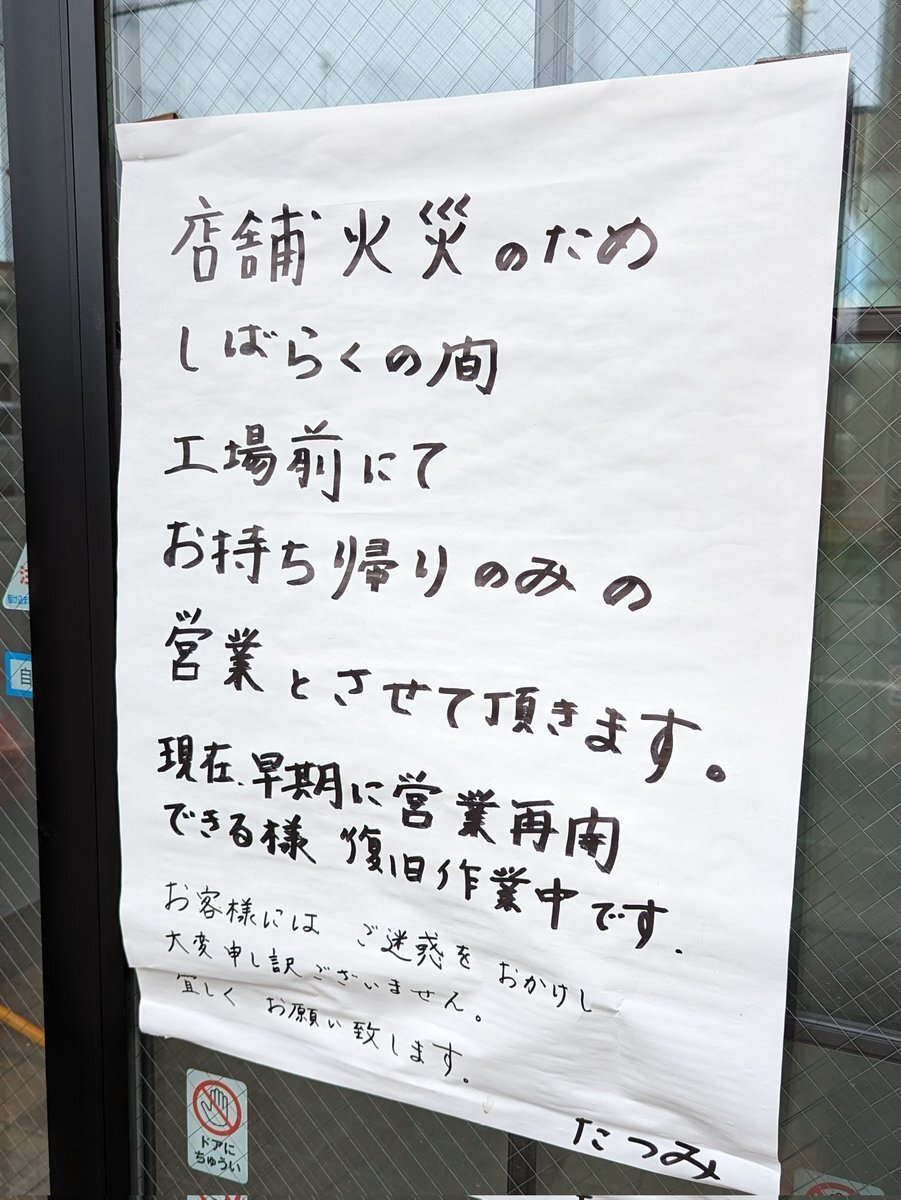 店舗火災のため
しばらくの間
工場前にて
お持ち帰りのみの
営業とさせて頂きます。
現在、早期に営業再開
できる様 復旧作業中です.
お客様には ご迷惑を おかけし
大変申し訳ございません。
宜しく お願い致します。
たつみ
ドアに
ちゅうい